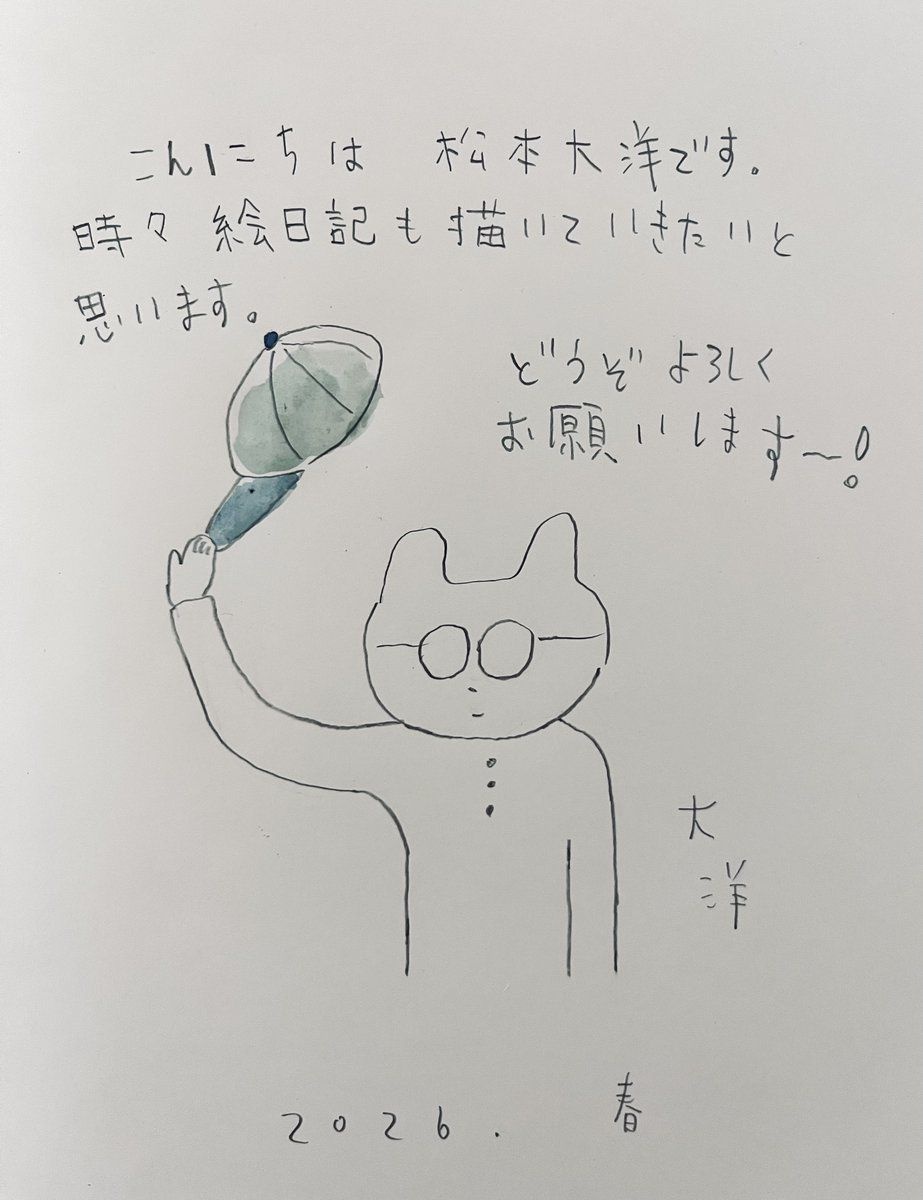 こんにちは 松本大洋です。
時々 絵日記も描いていきたいと
思います。
どうぞよろしく
お願いします〜!
大
洋
2026. 春